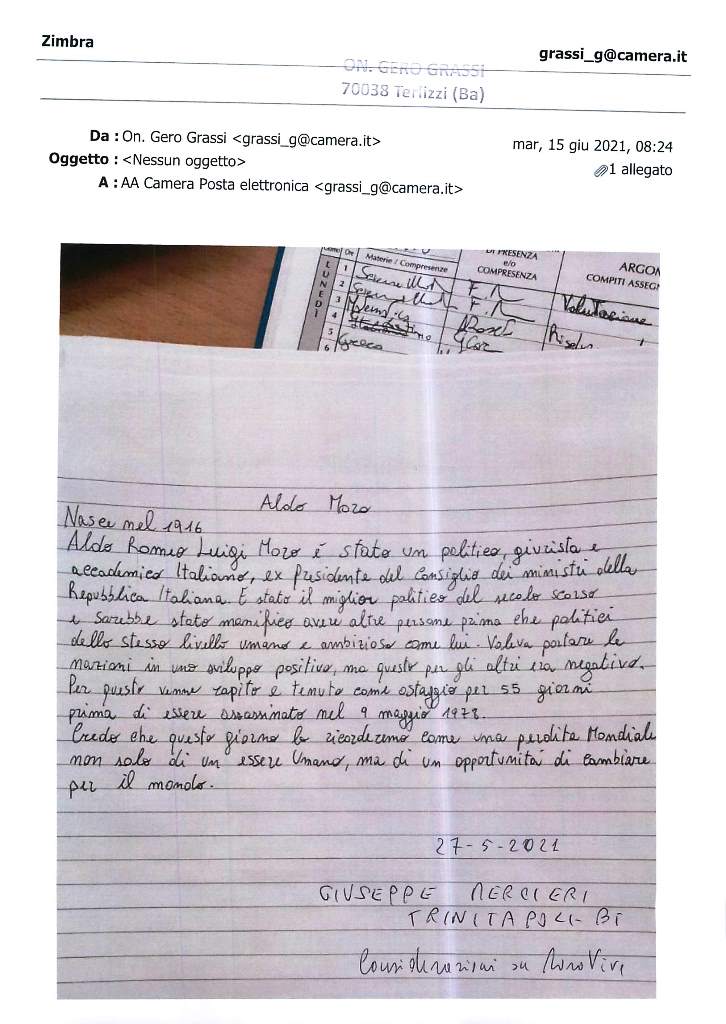 Zimbra
grassi_g@camera.it
ON. GERO GRASSI
70038 Terlizzi (Ba)
Da : On. Gero Grassi <grassi_g@camera.it>
mar, 15 giu 2021, 08:24
Oggetto : <Nessun oggetto>
1 allegato
A : AA Camera Posta elettronica <grassi_g@camera.it>
Ore Materie / Compresenze
DI PRESENZA
e/o
COMPRESENZA
ARGOM
COMPITI ASSEGN
LUNEDÌ
1
2
3
4
5 Greco
6
Valutazione
Aldo Moro
Nasce nel 1916
Aldo Romeo Luigi Moro è stato un politico, giurista e
accademico Italiano, ex Presidente del Consiglio dei ministri della
Repubblica Italiana. È stato il miglior politico del secolo scorso
e sarebbe stato manifico avere altre persone prima che politici
dello stesso livello umano e ambizioso come lui. Voleva portare le
nazioni in uno sviluppo positivo, ma questo per gli altri era negativo.
Per questo venne rapito e tenuto come ostaggio per 55 giorni
prima di essere assassinato nel 9 maggio 1978.
Credo che questo giorno lo ricorderemo come una perdita Mondiale
non solo di un essere Umano, ma di un opportunitá di cambiare
per il mondo.
27-5-2021
GIUSEPPE MERCIERI
TRINITAPOLI-BT
Considerazioni su Moro Vive